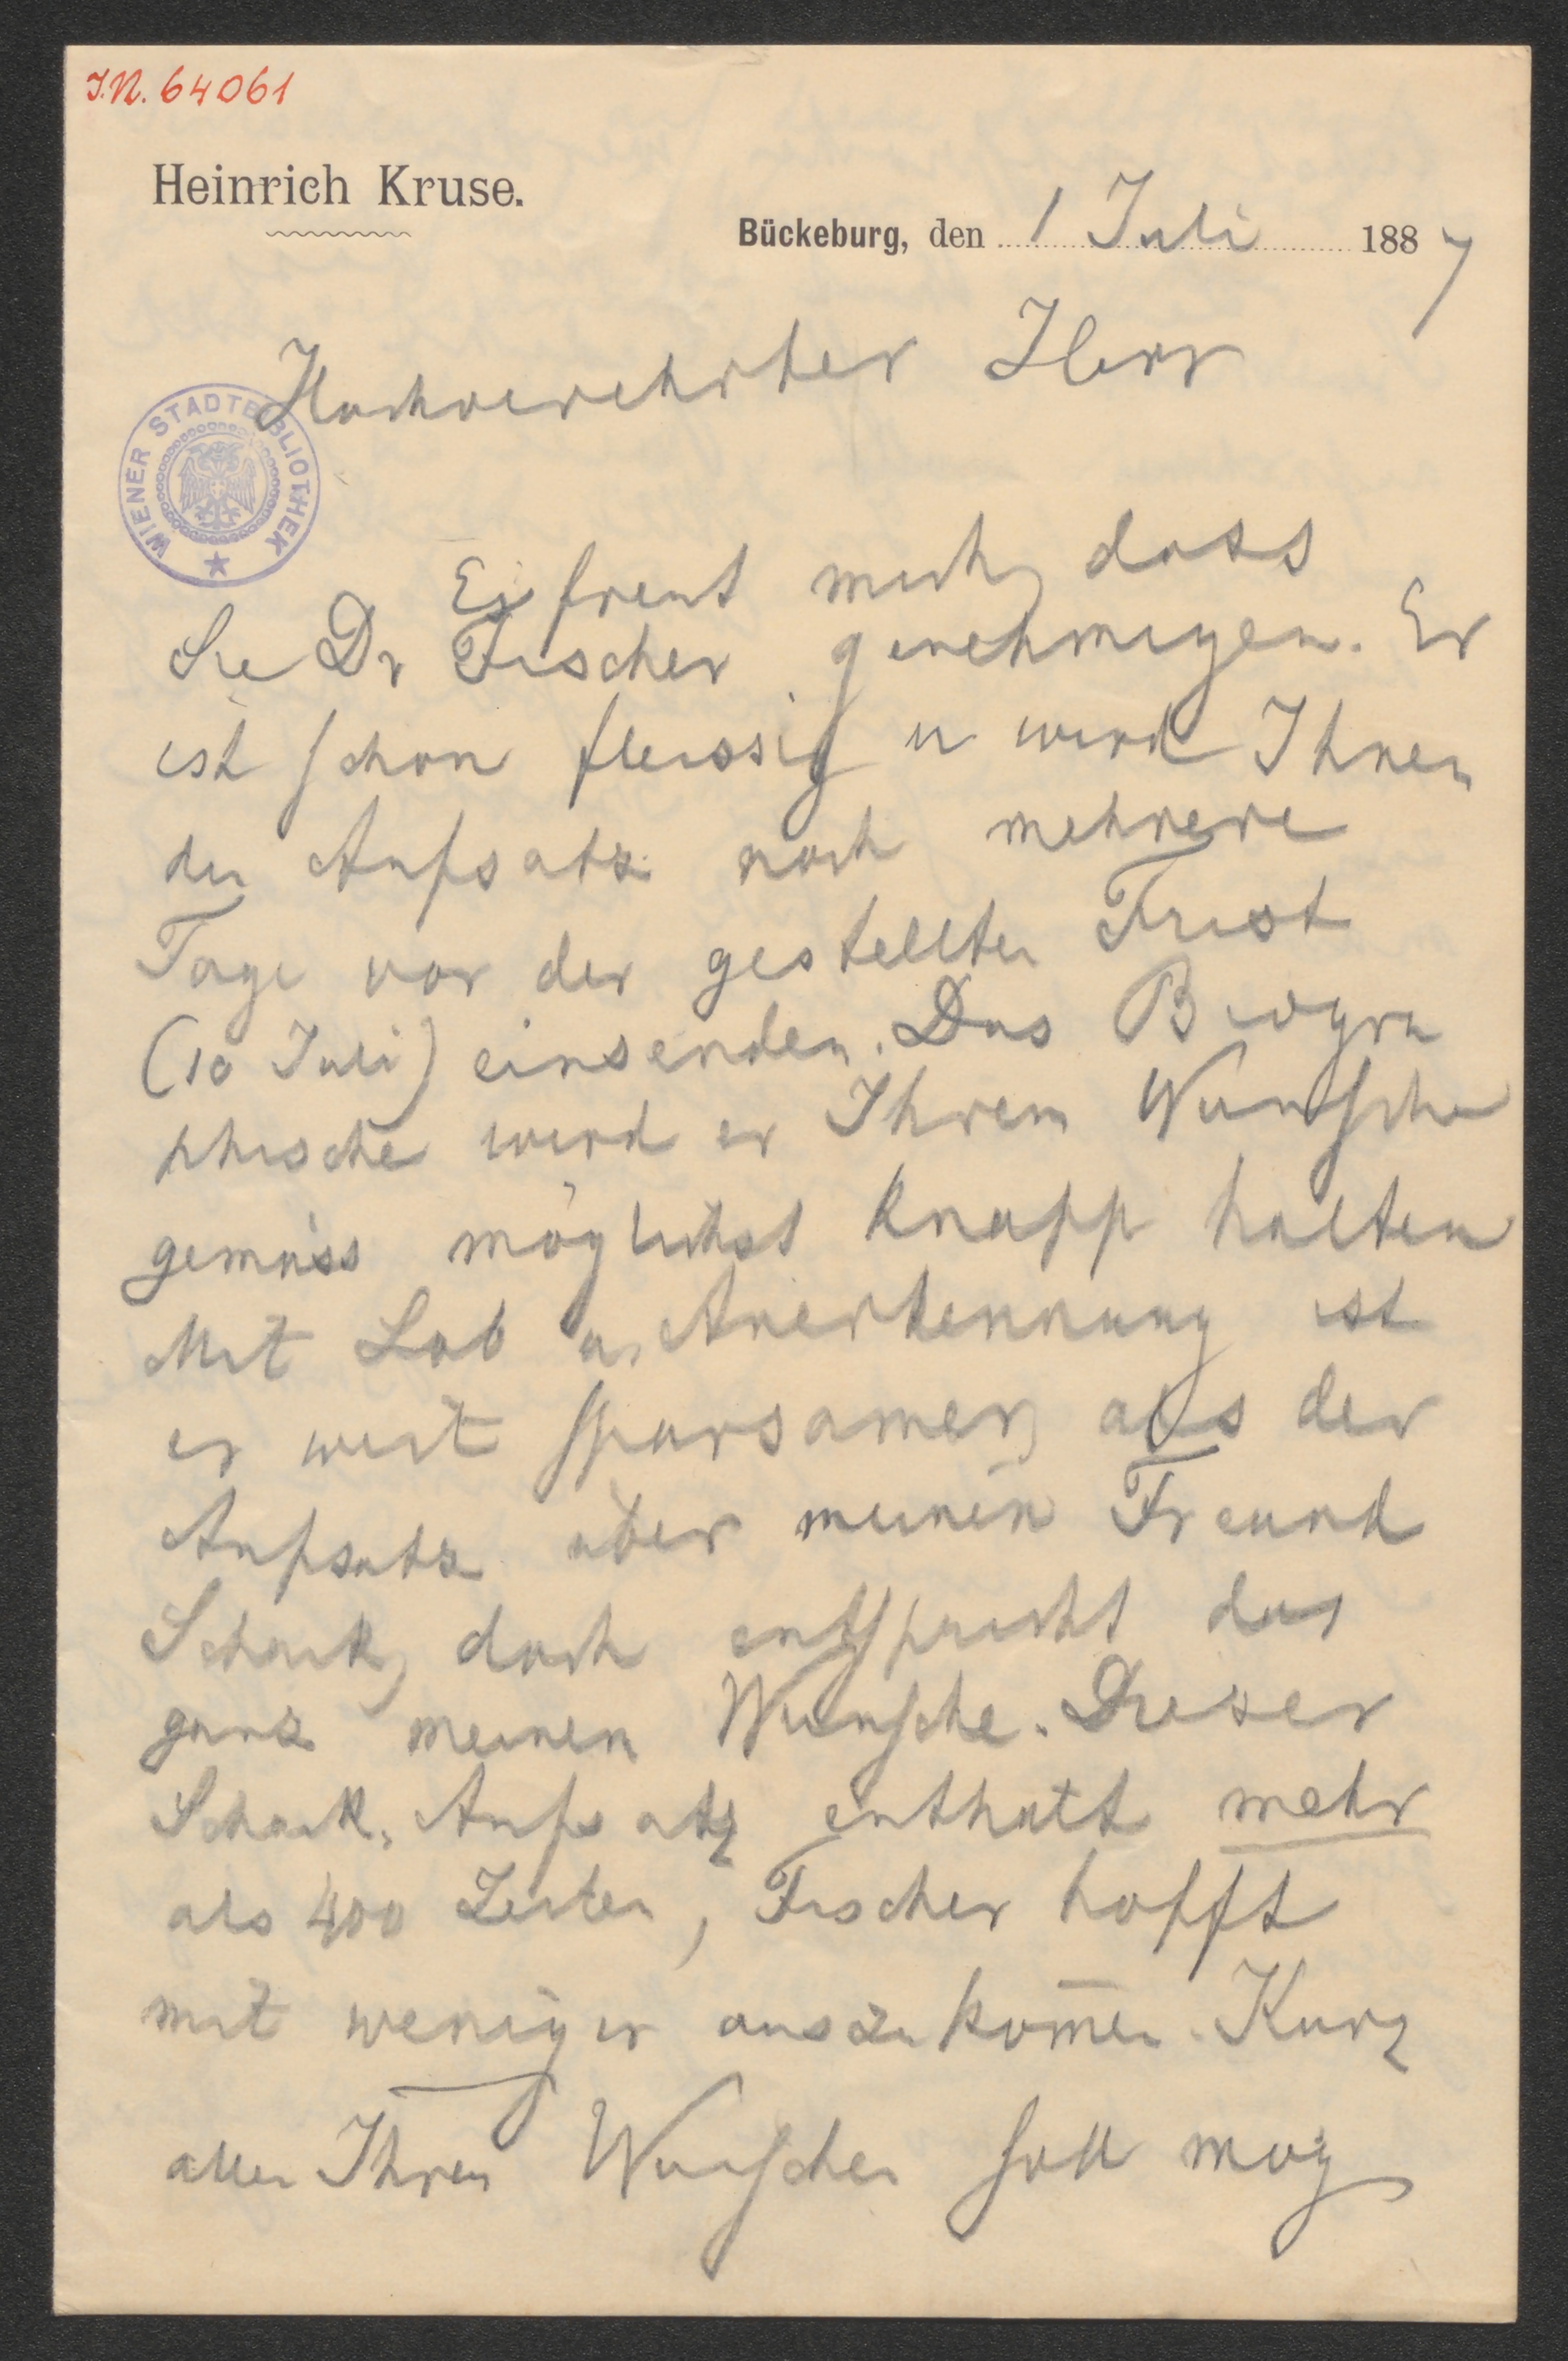 J.N. 64061
Heinrich Kruse.
Bückeburg, den 1 Juli 1887
Hochverehrter Herr
WIENER STADTBIBLIOTHEK
Es freut mich, dass
Sie Dr Fischer genehmigen. Er
ist schon fleissig u wird Ihnen
den Aufsatz noch mehrere
Tage vor der gestellten Frist
(10 Juli) einsenden. Das Biogra
phische wird er Ihrem Wunsche
gemäss möglichst knapp halten
Mit Lob u. Anerkennung ist
er weit sparsamer, als der
Aufsatz über meinen Freund
Schack, doch entspricht das
ganz meinem Wunsche. Dieser
Schack. Aufsatz enthält mehr
als 400 Zeilen, Fischer hofft
mit weniger auszukom̅en. Kurz
allen Ihren Wünschen soll mög